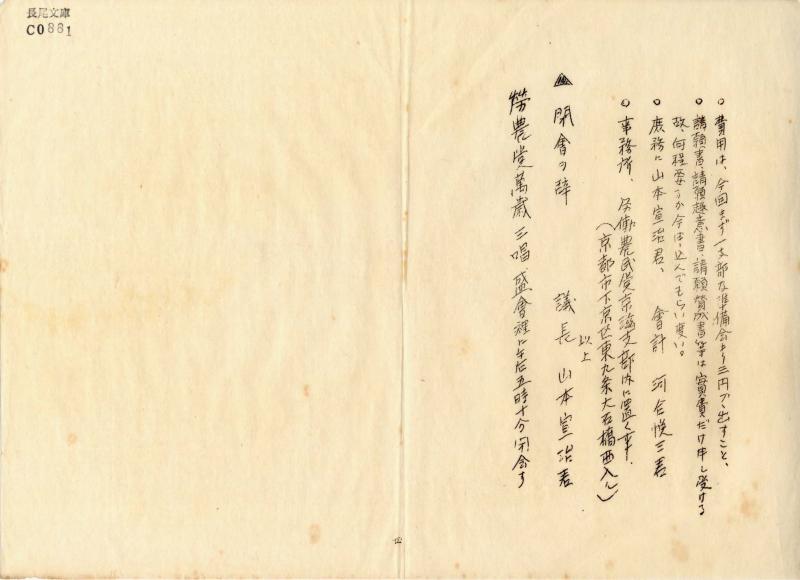 長尾文庫
C0881
○ 費用は、今回まず一支部な準備会より三円づゝ出すこと、
○ 請願書、請願趣意書、請願賛成書等は實費だけ申し受ける
故、何程要るか今は込んでもらい度い。
○ 庶務に山本宣治君、 會計 河合悦三君
○ 事務所、労働農民党京都支部内に置く事、
(京都市下京区東九条大石橋西入ル)
以上
▲ 閉會の辞 議長 山本宣治君
勞農党萬歳三唱盛會裡に午后五時十分閉会す